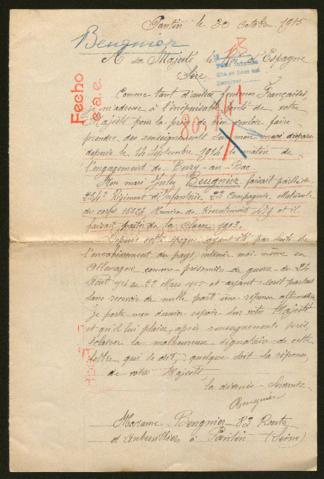 Pantin le 20 Octobre 1915
Beugnier
A sa Majesté le Roi d'Espagne
Sire
Comme tant d'autres femmes Françaises
je m'adresse à l'inépuisable bonté de votre
Majesté pour la prier de bien vouloir faire
prendre des renseignements sur mon mari disparu
depuis le 14 Septembre 1914 le matin de
l'engagement de Berry-au-Bac.
Mon mari Beugnier faisait partie du
254e Régiment d'Infanterie, 22e Compagnie, Matricule
du corps Numéro de Recrutement et il
faisait partie de la classe 1903.
Depuis cette époque ayant été par suite de
l'envahissement du pays, internée moi même en
Allemagne comme prisonnière de guerre du 26
Août 1914 au 22 Mars 1915 et ayant écrit partout
sans recevoir de nulle part une réponse affirmative
je porte mon dernier espoir sur votre Majesté
et qu'il lui plaise, après renseignements pris,
éclairer la malheureuse signataire de cette
lettre, qui le set, quelque soit la réponse
de votre Majesté
la dévouée Servante
Beugnier
Madame Beugnier 82 Route
d'Aubervilliers à Pantin (Seine)
Fecho